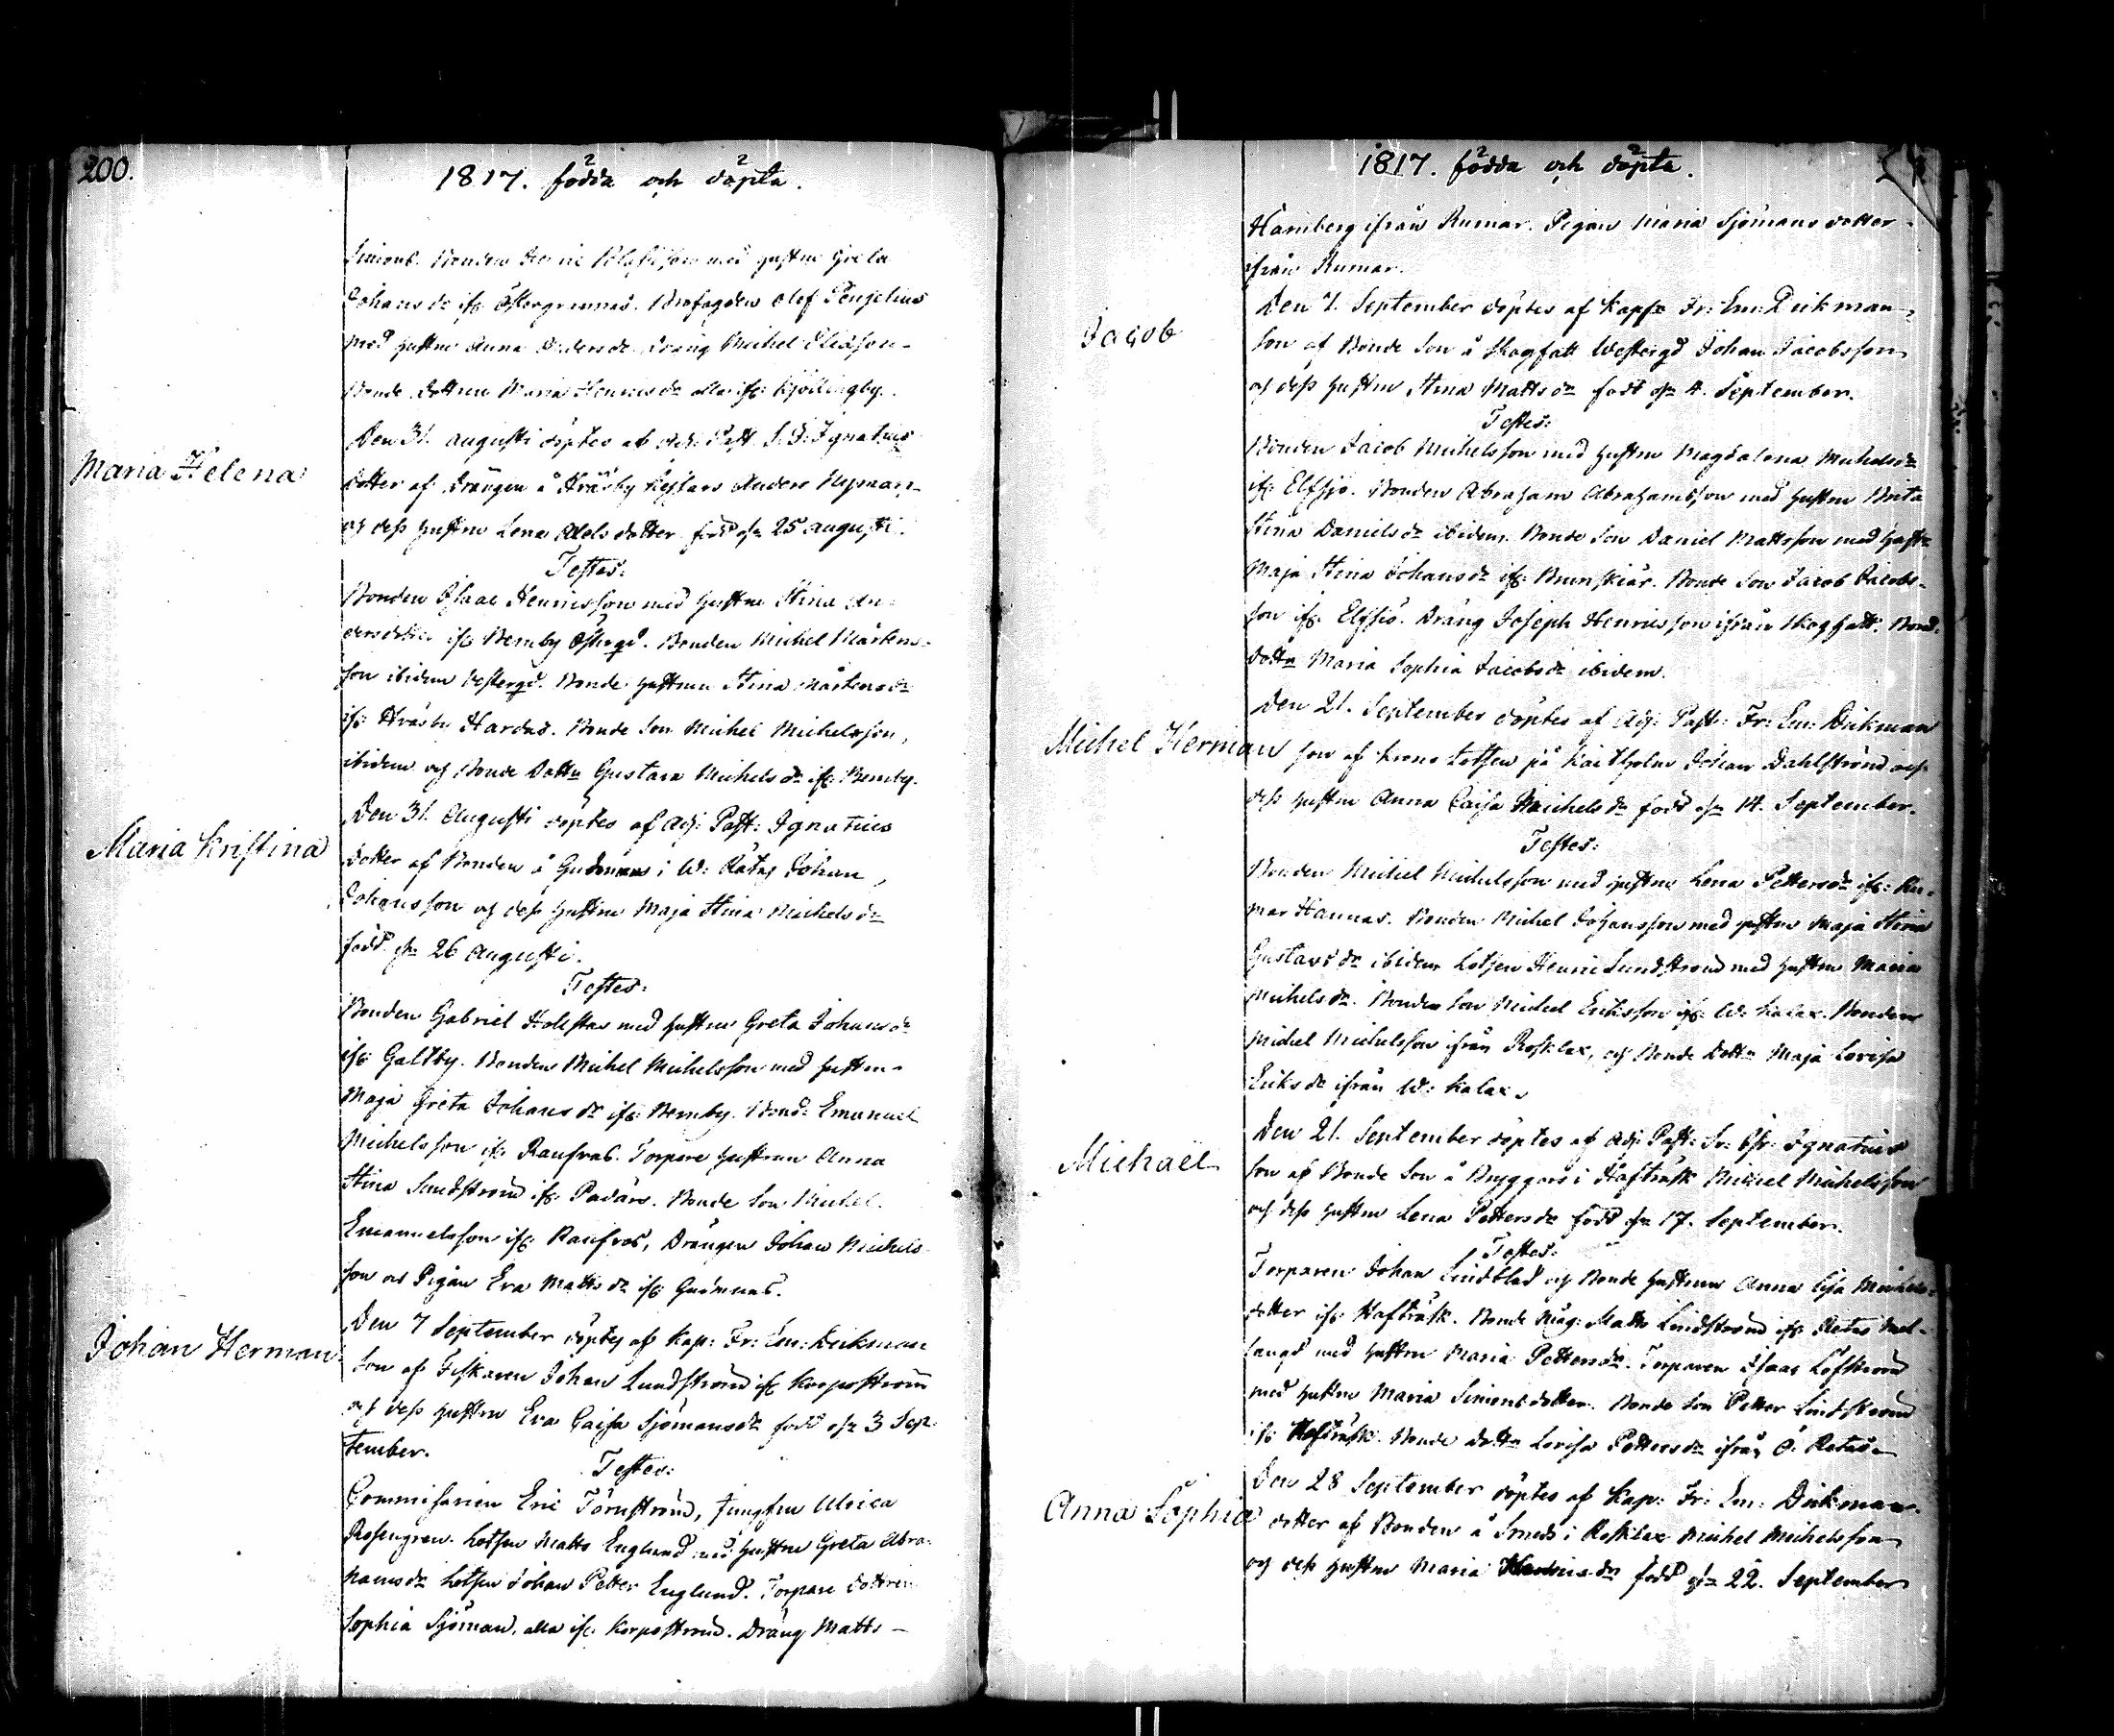 200.
1817. födda och döpta.
Simons. Bonden Henric Olofsson med hustru Greta
Johans dr ifr: Östergrannas. Olof Sengelius
med hustru Anna Anders dr. Dräng Michel Eliasson
Bonde Dottren Maria Henrics dr alla ifr: Kjöllingby.
Maria Helena
Den 31. Augusti döptes af Adj: Past. J. F. Ignatius
dotter af Drängen å Hväsby Anders Nyman
och dess hustru Lena Axels dotter född d: 25 Augusti.
Testes:
Bonden Isaac Henricsson med hustru Stina An-
dersdotter ifr: Bemby Östergd. Bonden Michel Mårtens-
son ibidem Vestergd. Bonde hustrun Stina Mårtens dr
ifr: Hväsby Hardas. Bonde Son Michel Michelsson,
ibidem och Bonde Dottn Gustava Michels dr ifr: Bemby.
Maria Kristina
Den 31. Augusti döptes af Adj: Past: Ignatius
dotter af Bonden å Gudmuns i W: Rätas Johan
Johansson och dess hustru Maja Stina Michels dr
född d: 26 Augusti.
Testes:
Bonden Gabriel Holstas med hustru Greta Johans dr
ifr: Galtby. Bonden Michel Michelsson med hustru
Maja Greta Johans dr ifr: Bemby. Bond: Emanuel
Michelsson ifr: Ranfvas. Torpare hustrun Anna
Stina Sundström ifr: Padårs. Bonde Son Michel
Emanuelsson ifr: Ranfvas, Drängen Johan Michels-
son och Pigan Eva Matts dr ifr: Gudmuns.
Johan Herman
Den 7 September döptes af Kap: Fr: Em: Dickman
Son af Fiskaren Johan Lundström ifr: Korpoström
och dess hustru Eva Caisa Sjömans dr född d: 3 Sep-
tember.
Testes:
Commisarien Eric Törnström, Jungfru Ulrica
Rosengren. Lotsen Matts Englund med hustru Greta Abra-
hams dr Lotsen Johan Petter Englund. Torpare dottren
Sophia Sjöman, alla ifr: Korpoström. Dräng Matts
1817. födda och döpta.
Harnberg ifrån Rumar. Pigan Maria Sjömans dotter
ifrån Rumar.
Jacob
Den 7. September döptes af Kapp: Fr: Em: Dickman
Son af Bonde Son å Skogfatt Westergd Johan Jacobsson
och dess hustru Stina Matts dr född d: 4. September.
Testes:
Bonden Jacob Michelsson med hustru Magdalena Michels dr
ifr: Elfsjö. Bonden Abraham Abrahamsson med hustru Brita
Stina Daniels dr ibidem. Bonde Son Daniel Mattsson med hustr
Maja Stina Johans dr ifr: Brunskiär. Bonde Son Jacob Jacobs-
son ifr: Elfsjö. Dräng Joseph Henricsson ifrån Skogfatt. Bond:
Dottn Maria Sophia Jacobs dr ibidem.
Michel Herman
Den 21. September döptes af Adj: Past: Fr: Em: Dickman
son af Krono Lotsen på Kaitholm Johan Dahlström och
dess hustru Anna Caisa Michels dr född d: 14. September.
Testes:
Bonden Michel Michelsson med hustru Lena Petters dr ifr: Ru-
mar Hannas. Bonden Michel Johansson med hustru Maja Stina
Gustavs dr ibidem Lotsen Henric Sundström med hustru Maria
Michels dr. Bonden Son Michel Eriksson ifr: W: Kalax. Bonden
Michel Michelsson ifrån Rosklax, och Bonde Dottn Maja Lovisa
Eriks dr ifrån W: Kalax.
Michaël
Den 21. September döptes af Adj: Past: Ignatius
Son af Bonde Son å Bryggars i Hafträsk Michel Michelsson
och dess hustru Lena Petters dr född d: 17. September.
Testes:
Torparen Johan Lindblad och Bonde hustrun Anna Lisa Michels-
dotter ifr: Hafträsk. Bonde Måg: Matts Lindström ifr: Retas Mel-
langd med hustru Maria Petters dr. Torparen Isaac Löfström
med hustru Maria Simons dotter. Bonde Son Petter Lindström
ifr: Hafträsk. Bonde Dottn Lovisa Petters dr ifrån Ö. Retas
Anna Sophia
Den 28 September döptes af Kap: Fr: Em: Dickman
dotter af Bonden å Smeds i Rosklax Michel Michelsson
och dess hustru Maria Henrics dr född d: 22. September